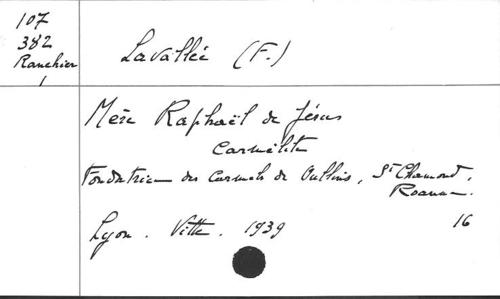 107
382
Ranchier
1
Lavallée (F.)
Mère Raphaël de Jésus
Carmélite
Fondatrice des Carmels de Oullins, St Chamond,
Roanne
Lyon. Vitte. 1939
16